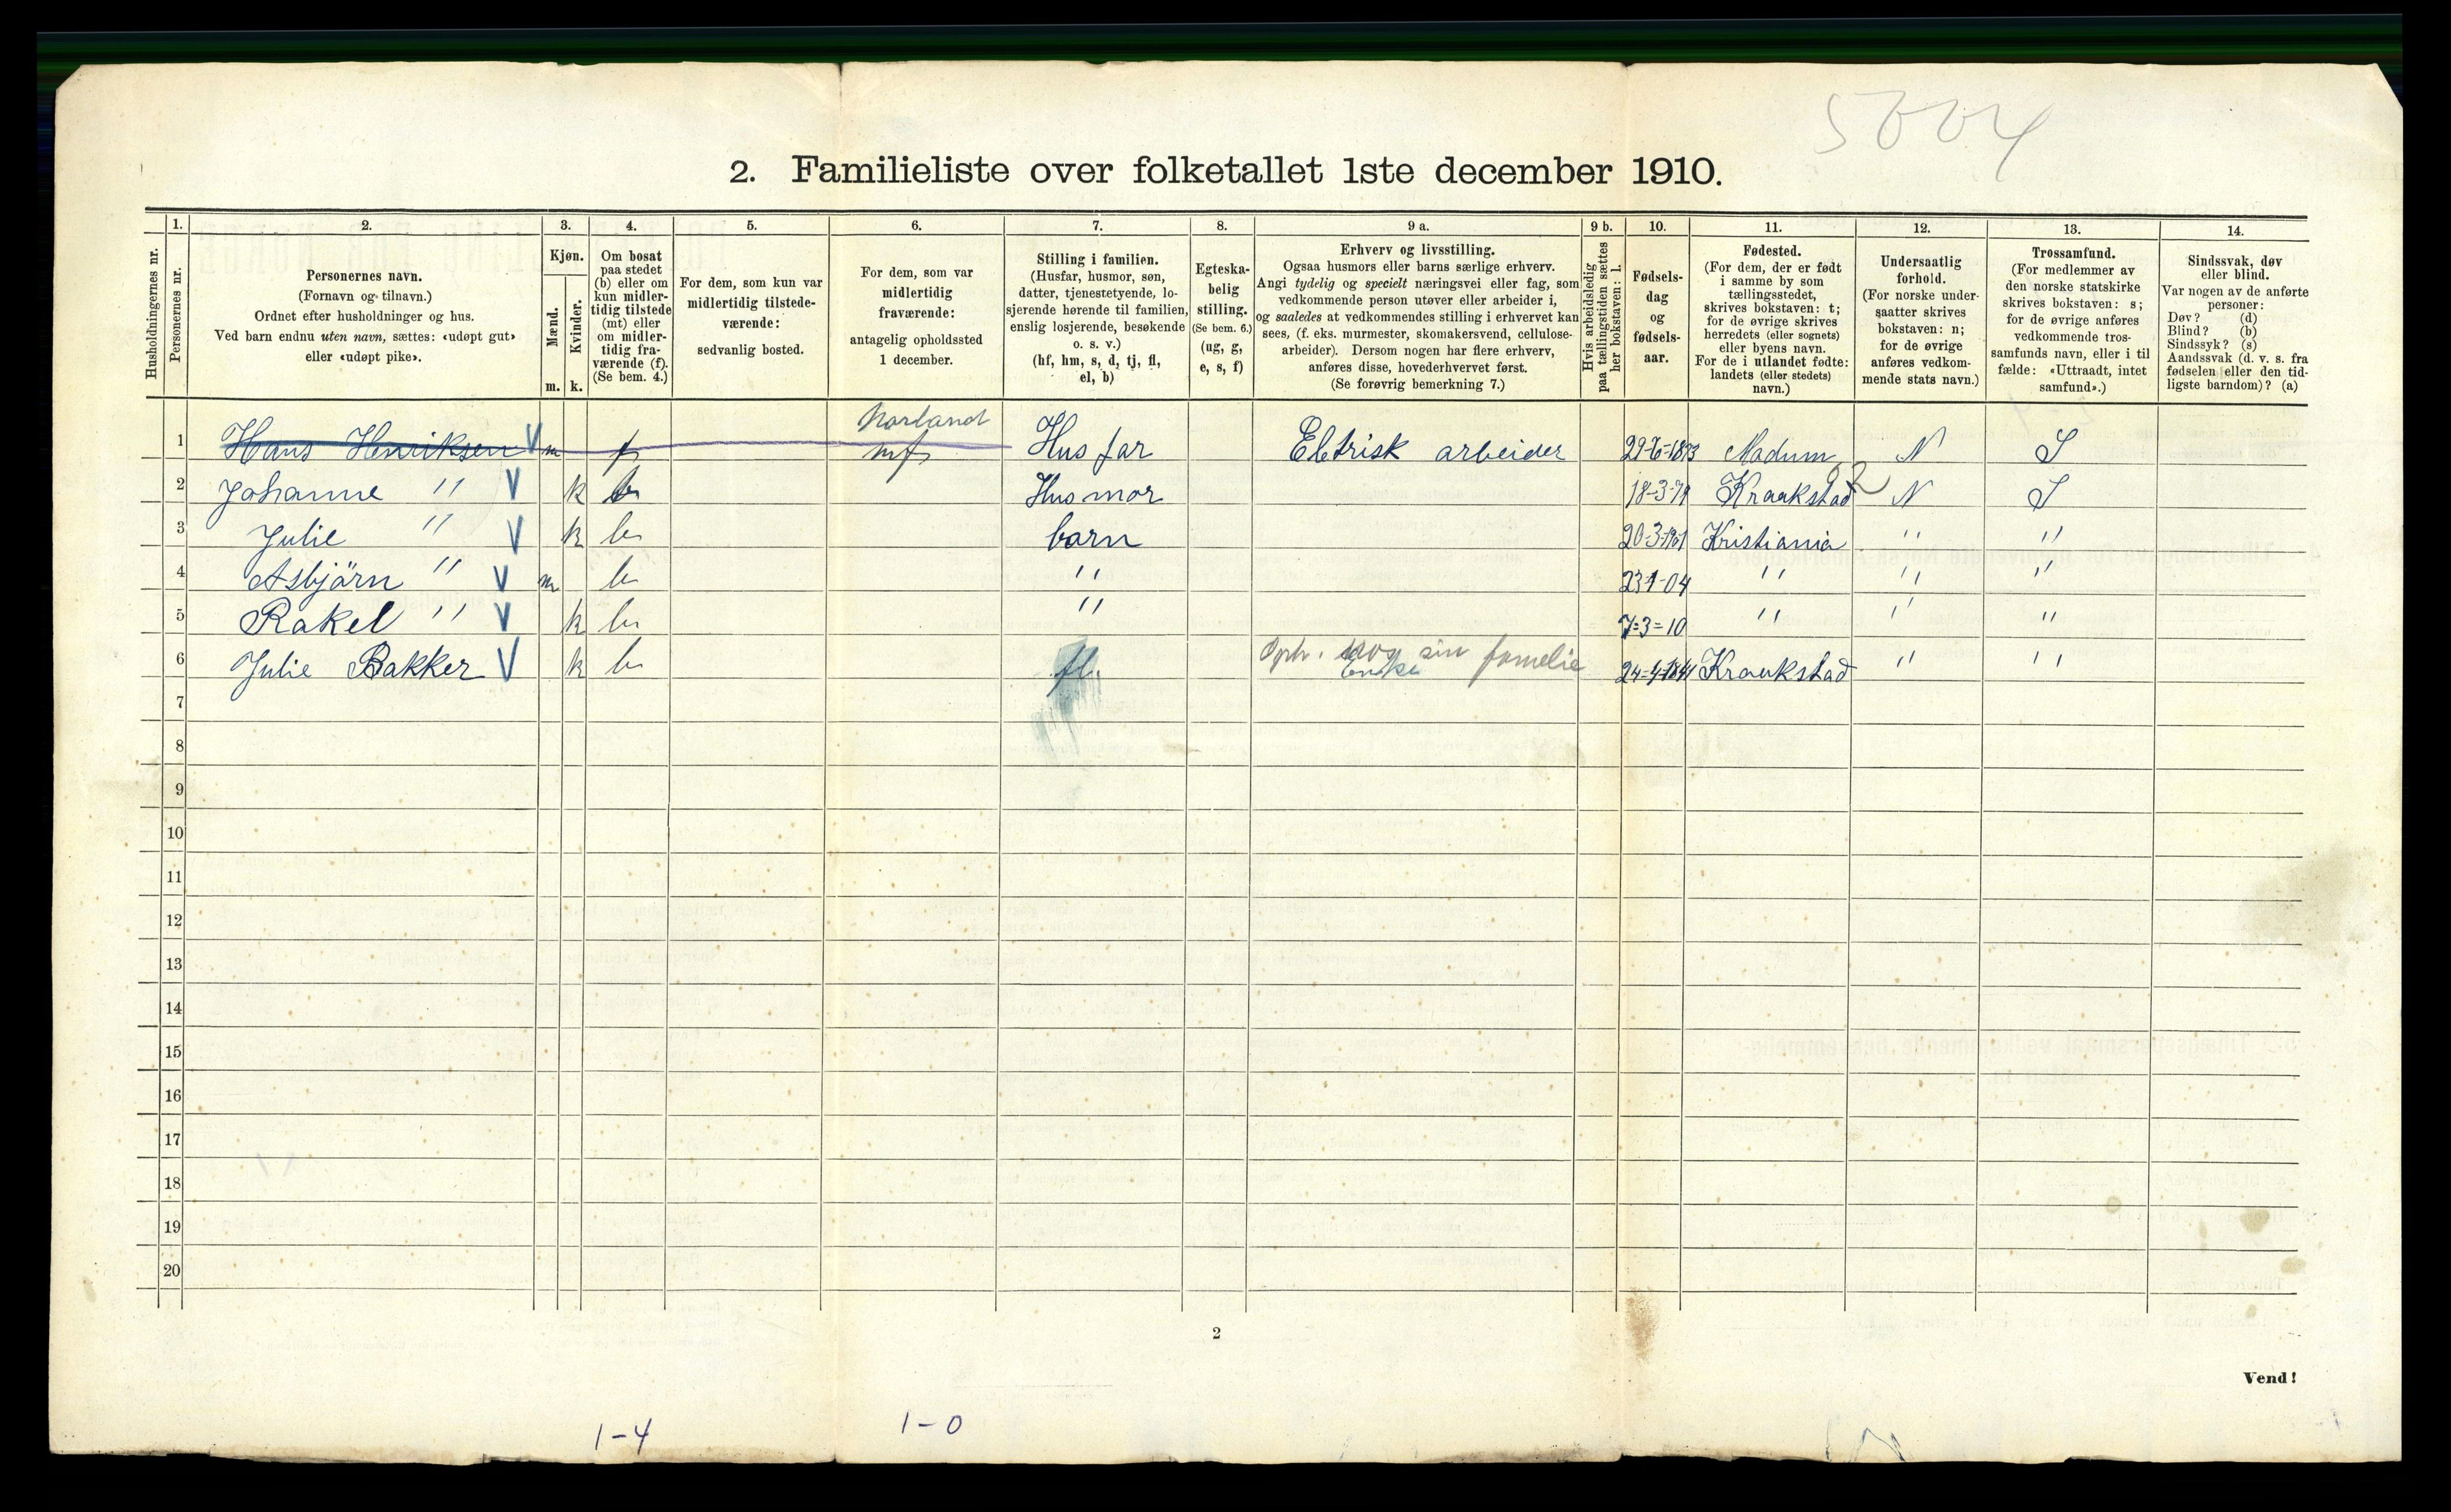 5004
2. Familieliste over folketallet 1ste december 1910.
Husholdningernes nr.
1.
Personernes nr.
2.
Personernes navn.
(Fornavn og tilnavn.)
Ordnet efter husholdninger og hus.
Ved barn endnu uten navn, sættes: «udøpt gut»
eller «udøpt pike».
3.
Kjøn.
Mænd.
Kvinder.
m. k.
4.
Om bosat
paa stedet
(b) eller om
kun midler-
tidig tilstede
(mt) eller
om midler-
tidig fra-
værende (f).
(Se bem. 4.)
5.
For dem, som kun var
midlertidig tilstede-
værende:
sedvanlig bosted.
6.
For dem, som var
midlertidig
fraværende:
antagelig opholdssted
1 december.
7.
Stilling i familien.
(Husfar, husmor, søn,
datter, tjenestetyende, lo-
sjerende hørende til familien,
enslig losjerende, besøkende
o. s. v.)
(hf, hm, s, d, tj, fl,
el, b)
8.
Egteska-
belig
stilling.
(Se bem. 6.)
(ug, g,
e, s, f)
9 a.
Erhverv og livsstilling.
Ogsaa husmors eller barns særlige erhverv.
Angi tydelig og specielt næringsvei eller fag, som
vedkommende person utøver eller arbeider i,
og saaledes at vedkommendes stilling i erhvervet kan
sees, (f. eks. murmester, skomakersvend, cellulose-
arbeider). Dersom nogen har flere erhverv,
anføres disse, hovederhvervet først.
(Se forøvrig bemerkning 7.)
9 b.
Hvis arbeidsledig
paa tællingstiden sættes
her bokstaven: l.
10.
Fødsels-
dag
og
fødsels-
aar.
11.
Fødested.
(For dem, der er født
i samme by som
tællingsstedet,
skrives bokstaven: t;
for de øvrige skrives
herredets (eller sognets)
eller byens navn.
For de i utlandet fødte:
landets (eller stedets)
navn.)
12.
Undersaatlig
forhold.
(For norske under-
saatter skrives
bokstaven: n;
for de øvrige
anføres vedkom-
mende stats navn.)
13.
Trossamfund.
(For medlemmer av
den norske statskirke
skrives bokstaven: s;
for de øvrige anføres
vedkommende tros-
samfunds navn, eller i til
fælde: «Uttraadt, intet
samfund».)
14.
Sindssvak, døv
eller blind.
Var nogen av de anførte
personer:
Døv? (d)
Blind? (b)
Sindssyk? (s)
Aandssvak (d. v. s. fra
fødselen eller den tid-
ligste barndom)? (a)
Norland
1 Hans Henriksen V m f mf Husfar Eletrisk arbeider Modum N S
2 Johanne " V k b Husmor 18-3-79 Kraakstad N S
3 Julie " V k b barn 20-3-1901 Kristiania " "
4 Asbjörn " V m b " 23-1-04 " " "
5 Rakel " V k b " 7=3=10 " " "
6 Julie Bakker V k b fl. sin famelie Kraakstad " "
Enke
7
8
9
10
11
12
13
14
15
16
17
18
19
20
2
Vend!
1-4 1-0